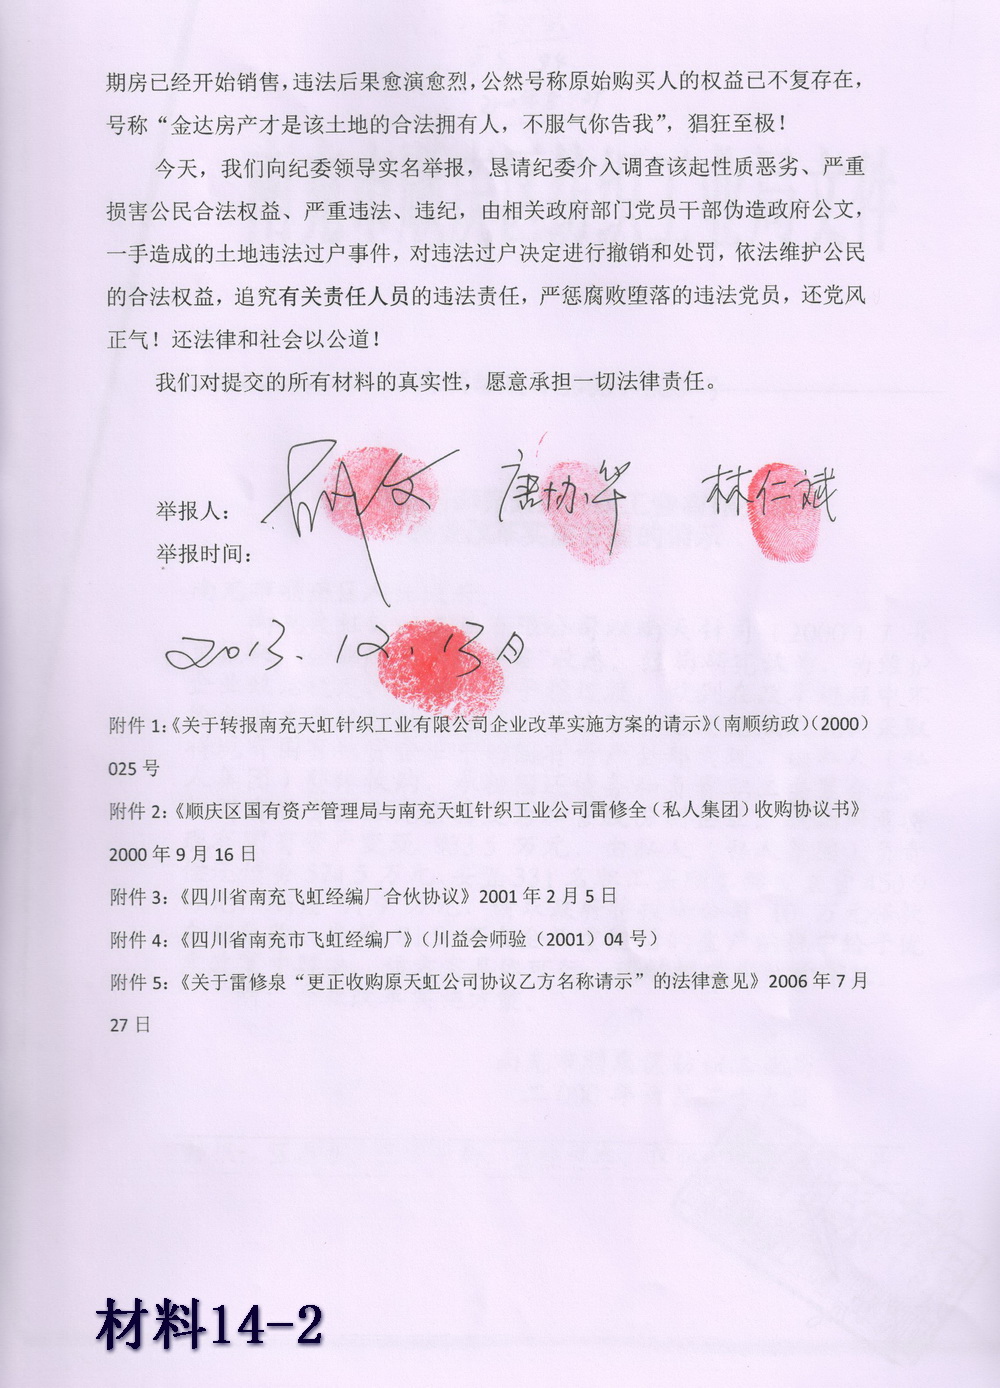 期房已经开始销售，违法后果愈演愈烈，公然号称原始购买人的权益已不复存在，
号称“金达房产才是该土地的合法拥有人，不服气你告我”，猖狂至极！
今天，我们向纪委领导实名举报，恳请纪委介入调查该起性质恶劣、严重
损害公民合法权益、严重违法、违纪，由相关政府部门党员干部伪造政府公文，
一手造成的土地违法过户事件，对违法过户决定进行撤销和处罚，依法维护公民
的合法权益，追究有关责任人员的违法责任，严惩腐败堕落的违法党员，还党风
正气！还法律和社会以公道！
我们对提交的所有材料的真实性，愿意承担一切法律责任。
举报人： 唐协华 林仁斌
举报时间：
2013.12.13日
附件 1：《关于转报南充天虹针织工业有限公司企业改革实施方案的请示》（南顺纺政）（2000）
025 号
附件 2：《顺庆区国有资产管理局与南充天虹针织工业公司雷修全（私人集团）收购协议书》
2000 年 9 月 16 日
附件 3：《四川省南充飞虹经编厂合伙协议》2001 年 2 月 5 日
附件 4：《四川省南充市飞虹经编厂》（川益会师验（2001）04 号）
附件 5：《关于雷修泉“更正收购原天虹公司协议乙方名称请示”的法律意见》2006 年 7 月
27 日
材料14-2